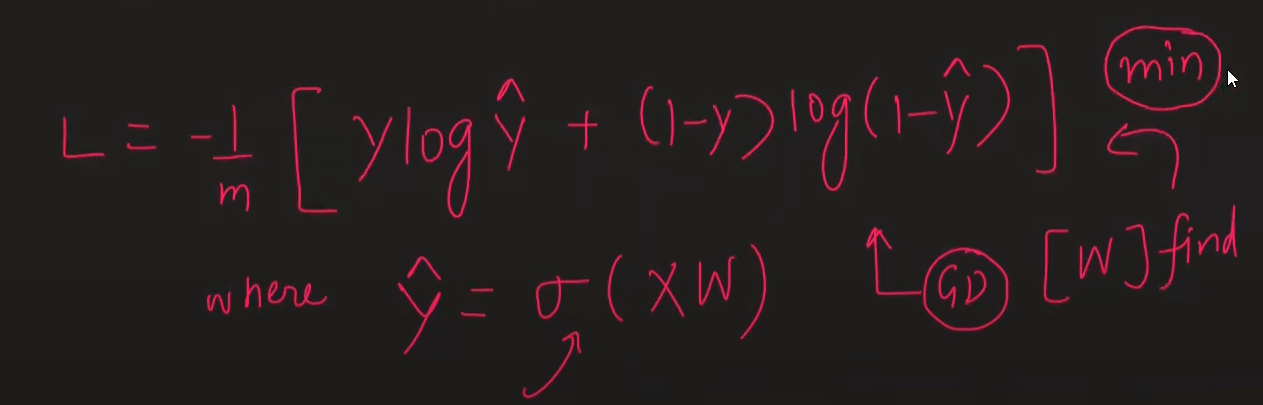 L = -1/m [ y log ŷ + (1-y) log(1-ŷ) ] min
where ŷ = σ(XW) GD [W] find